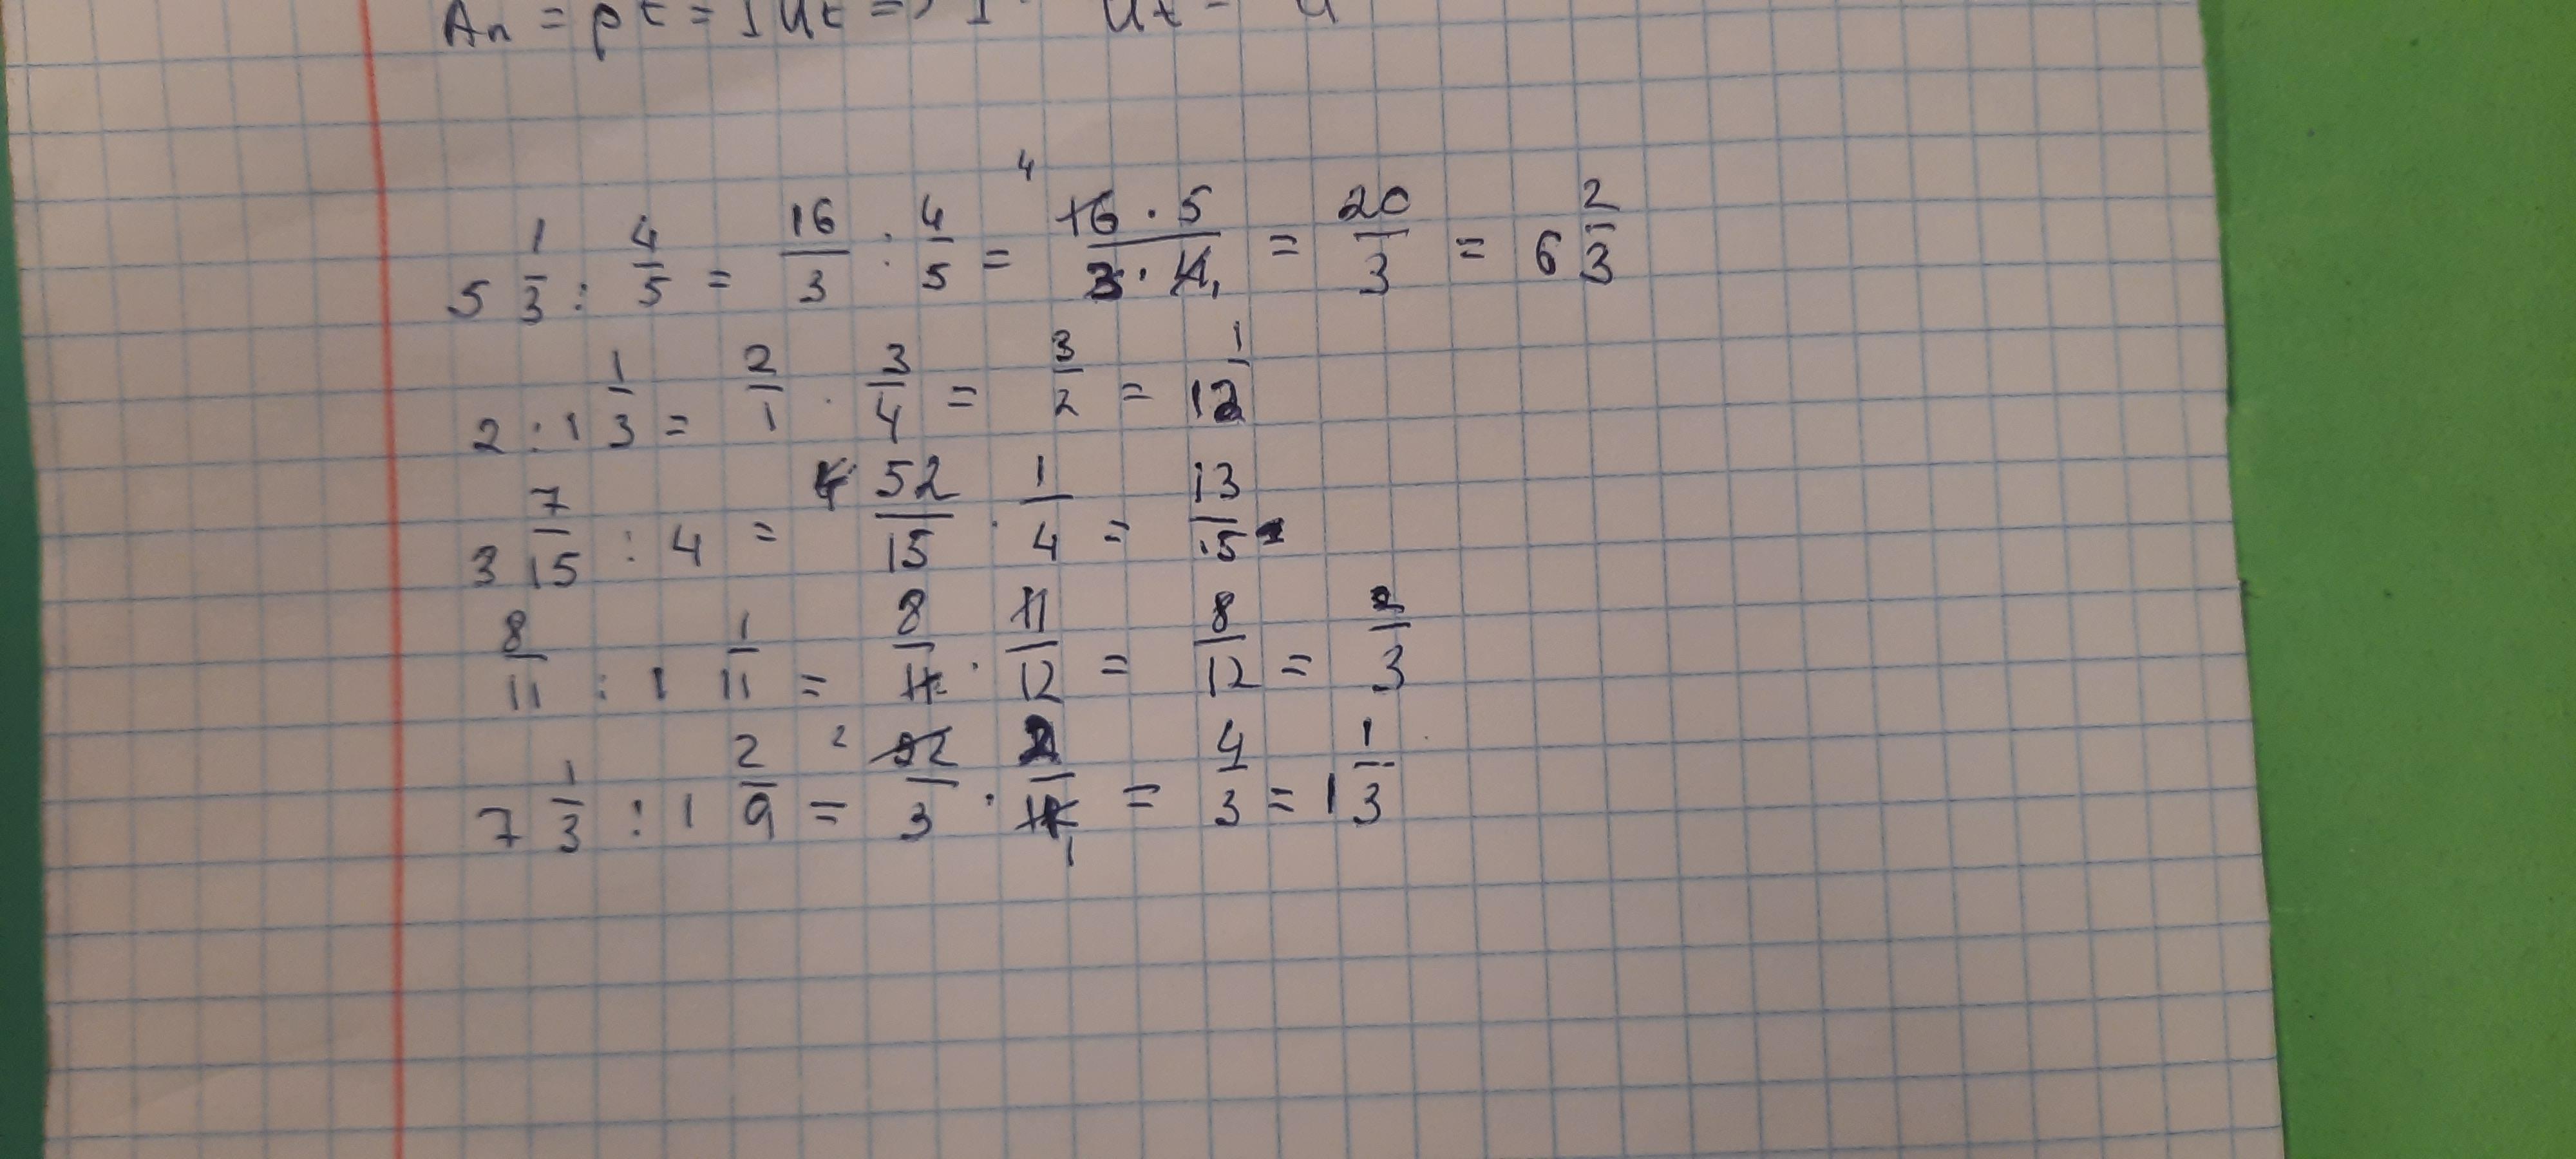 An = pt = IUt => I
5 1/3 : 4/5 = 16/3 : 4/5 = 16 · 5 / 3 · 4 = 20/3 = 6 2/3
2 : 1 1/3 = 2/1 · 3/4 = 3/2 = 1 1/2
3 7/15 : 4 = 52/15 · 1/4 = 13/15
8/11 : 1 1/11 = 8/11 · 11/12 = 8/12 = 2/3
7 1/3 : 1 2/9 = 22/3 · 2/11 = 4/3 = 1 1/3